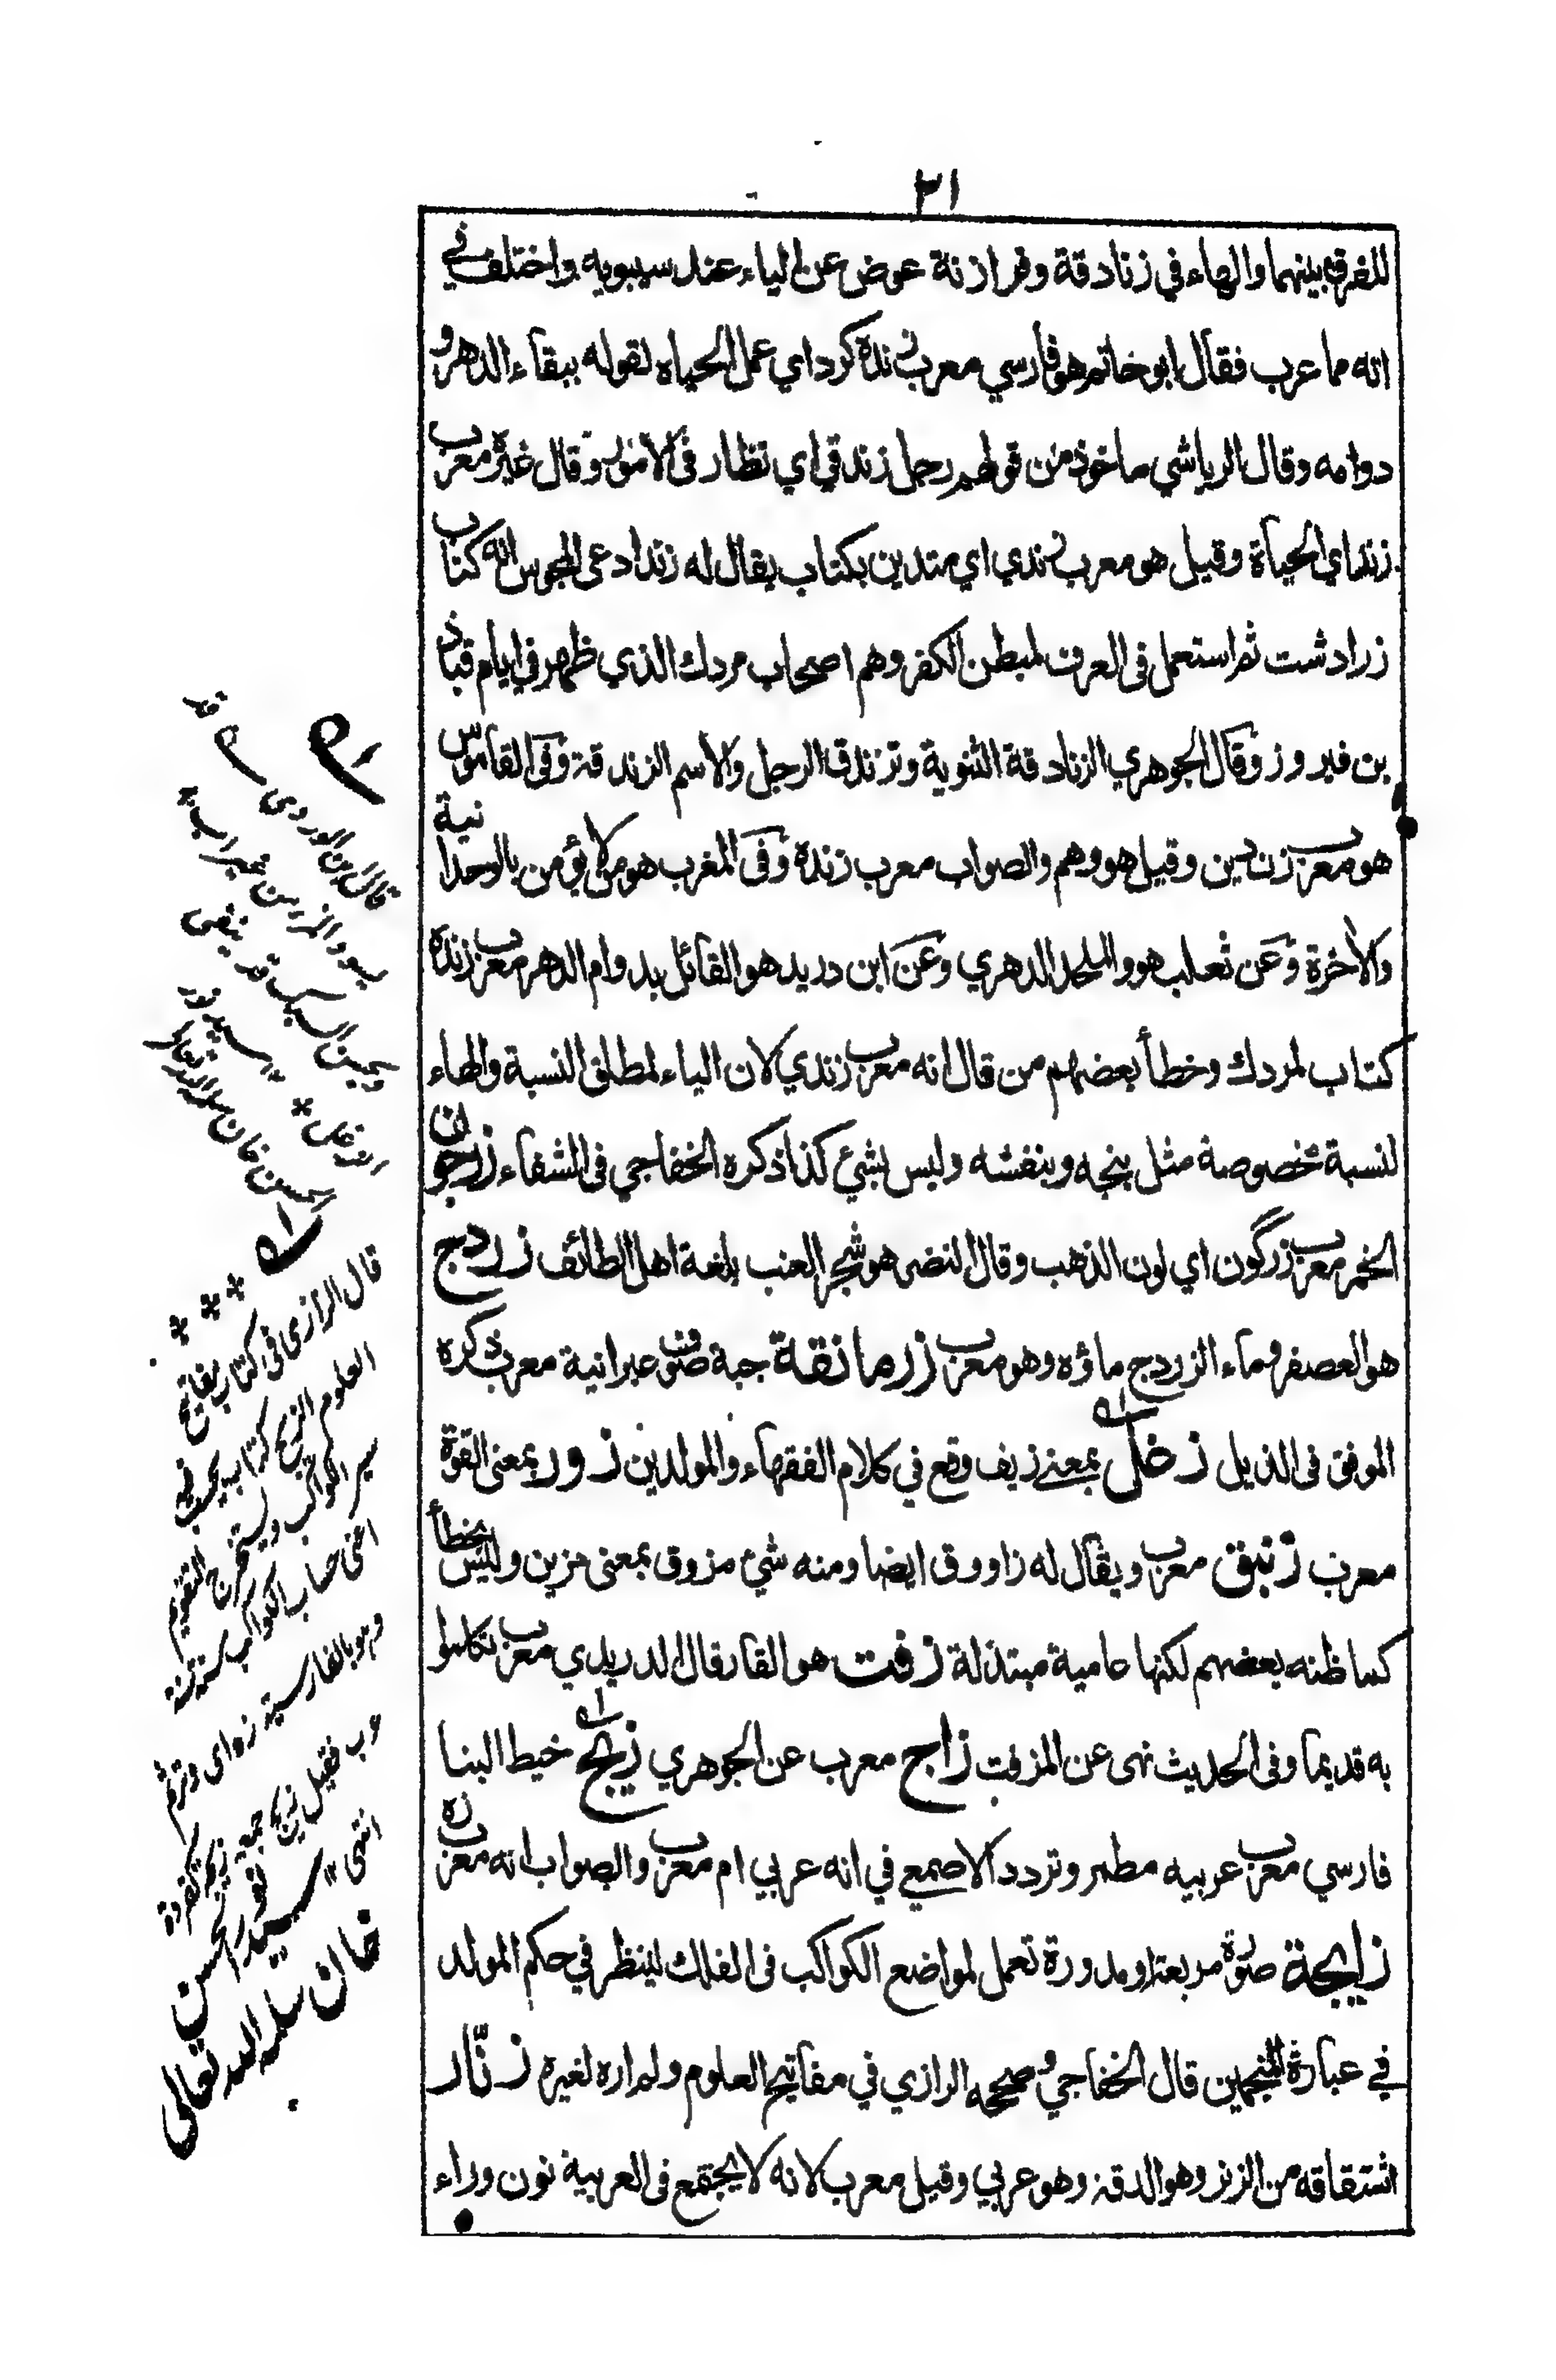 ٣١
للفرق بينهما والهاء في زنادقة وفرازنة عوض عن الياء عند سيبويه واختلف في
انه مما عرب فقال ابو خاتم هو فارسي معرب زنده كرد اي عمل الحياه لقوله ببقاء الدهر و
دوامه وقال الرياشي ماخوذ من قولهم رجل زندقي اي نظار فى الامور وقال غيره معرب
زنداي الحياة وقيل هو معرب زندي اي متدين بكتاب يقال له زند ادعى المجوس انه كتاب
زرادشت ثم استعمل فى العرف لمبطن الكفر وهم اصحاب مردك الذي ظهر في ايام قباذ
بن فيروز وقال الجوهري الزنادقة الثنوية وتزندق الرجل والاسم الزندقة وفى القاموس
هو معرب زن دين وقيل هو وهم والصواب معرب زنده وفى المغرب هو من لا يؤمن بالوحدانية
والاخرة وعن ثعلب هو والملحد الدهري وعن ابن دريد هو القائل بدوام الدهر معرب زنده
كتاب لمردك وخطأ بعضهم من قال انه معرب زندي لان الياء لمطلق النسبة والهاء
لنسبة مخصوصة مثل پنجه وبنفشه وليس بشئ كذا ذكره الخفاجي فى الشفاء زرجون
الخمر معرب زرگون اي لون الذهب وقال النضر هو شجر العنب بلغة اهل الطائف زردج
هو العصفر وماء الزردج ماؤه وهو معرب زرمانقة جبة صوف عبرانية معرب ذكره
الموفق فى الذيل زغل بمعنے زيف وقع في كلام الفقهاء والمولدين زور بمعنى القوة
معرب زنبق معرب ويقال له زاووق ايضا ومنه شئ مزوق بمعنى مزين وليس بخطأ
كما ظنه بعضهم لكنها عامية مبتذلة زفت هو القار قال الدريدي معرب تكلموا
به قديما وفى الحديث نهى عن المزفت زاج معرب عن الجوهري زيج خيط البنا
فارسي معرب عربيه مطمر وتردد الاصمعي في انه عربي ام معرب والصواب انه معرب زه
زايجة صورة مربعة او مدورة تعمل لمواضع الكواكب فى الفلك لينظر في حكم المولد
في عبارة المنجمين قال الخفاجي وصححه الرازي في مفاتيح العلوم ولم اره لغيره زنّار
اشتقاقه من الزنر وهو الدقة وهو عربي وقيل معرب لانه لا يجتمع فى العربية نون وراء
قال ابن الوردى
قال الرازى فى كتاب مفاتيح
العلوم الزيج كتاب يحسب فيه
سير الكواكب ويستخرج التقويم
اعنى حساب الكواكب سنة سنة
وهو بالفارسية زه اى وتر ثم
عرب فقيل زيج جمعه زيجة كقردة
انتهى سيد نور الحسن
خان سلمه الله تعالى